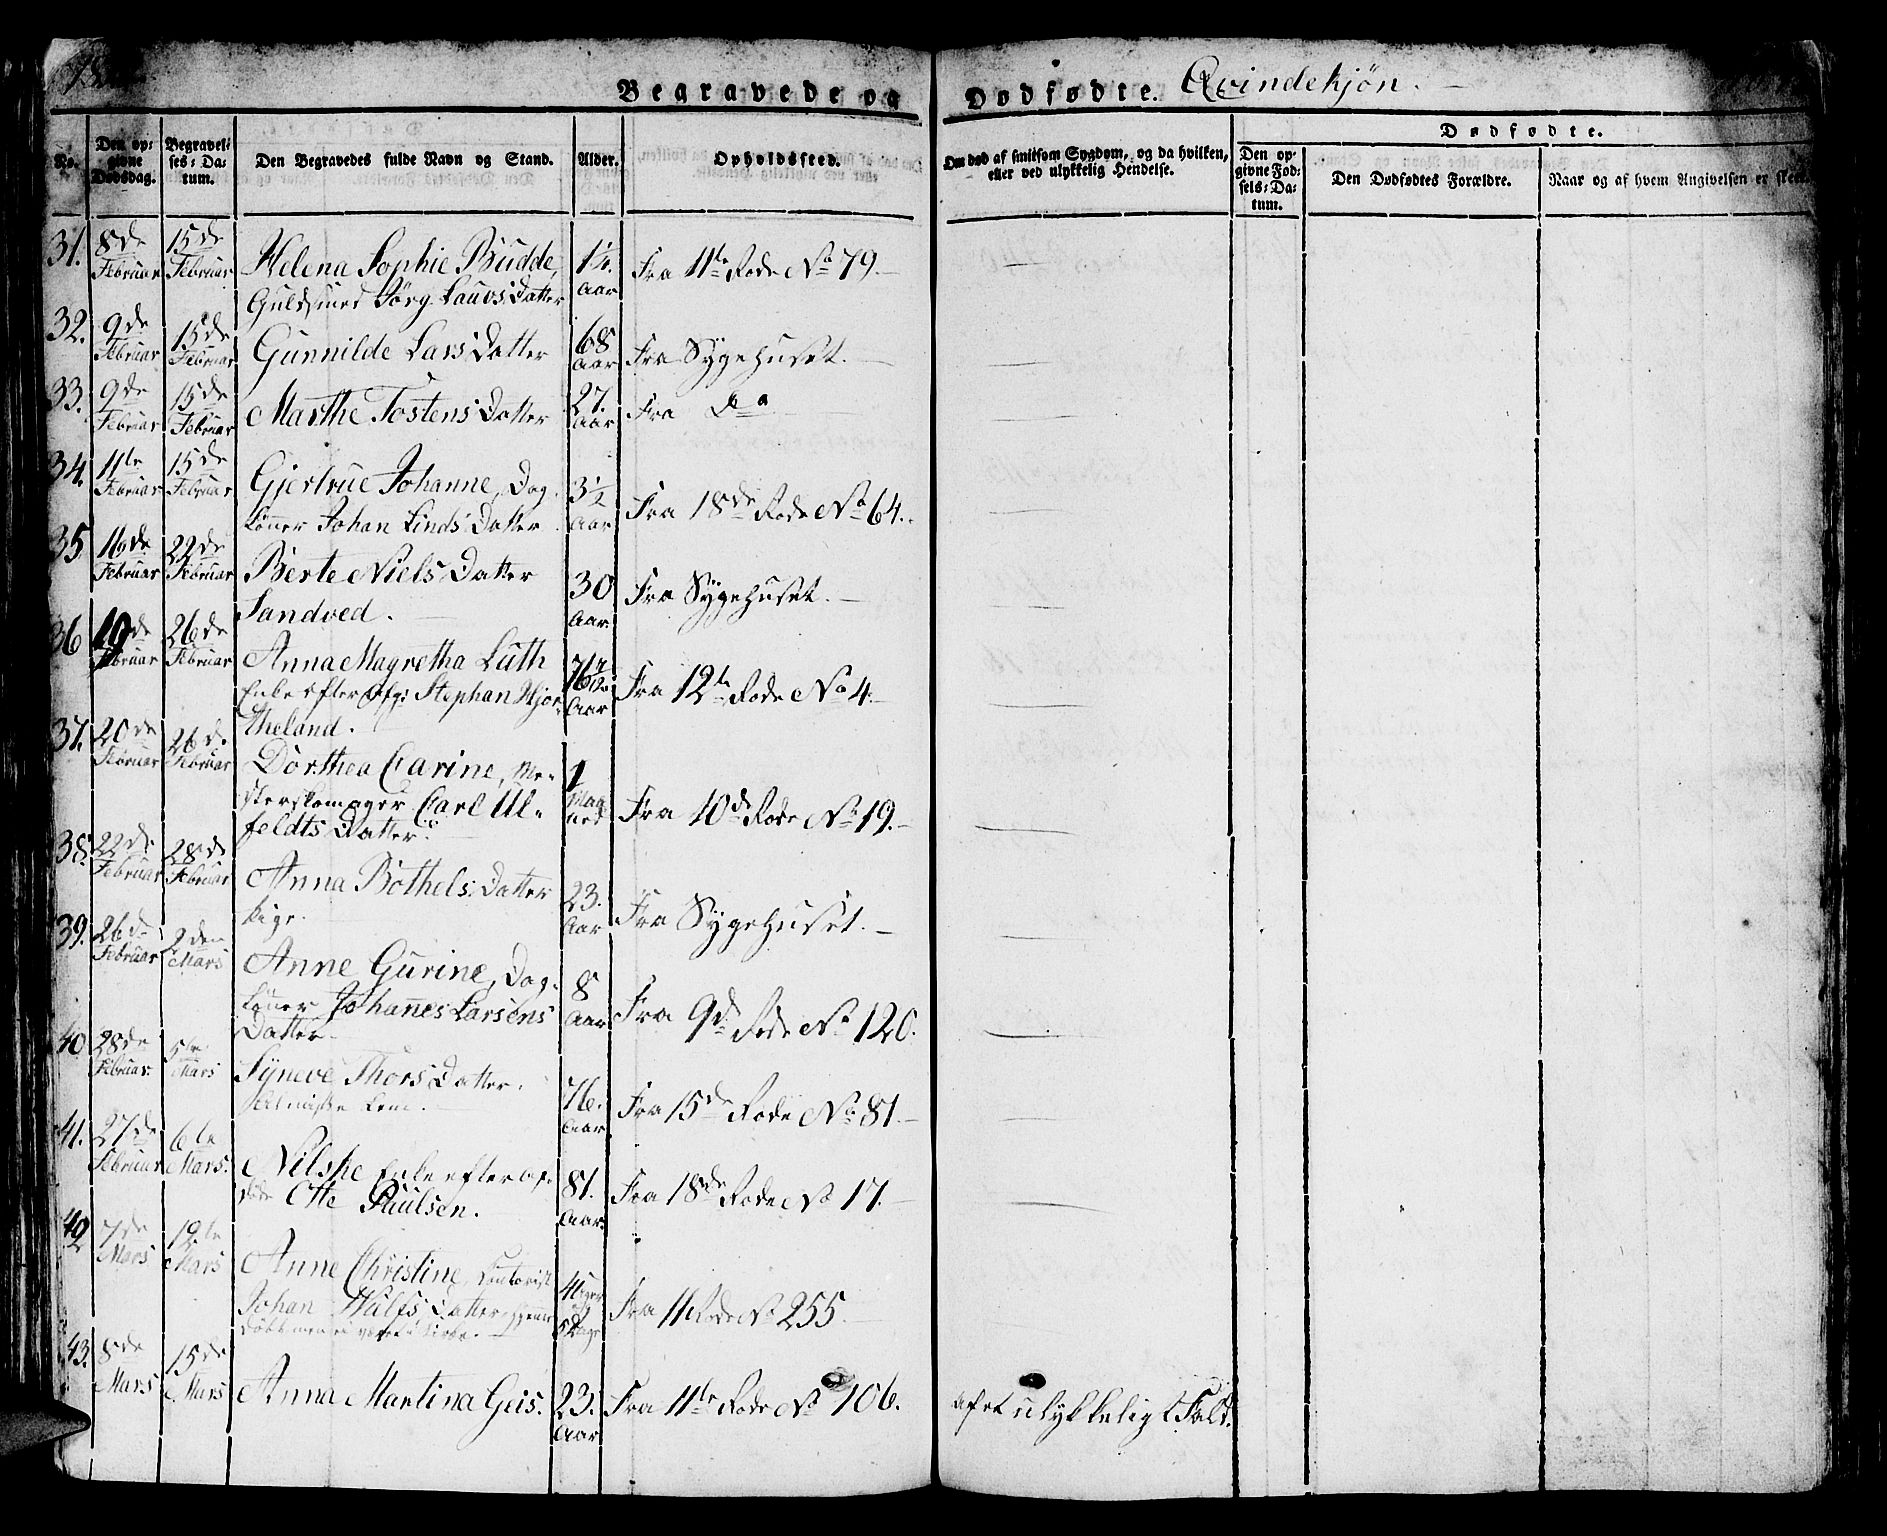 Begravede og Dødfødte. Qvindekjøn.
No.
Den opgivne Dødsdag.
Begravelses-Datum.
Den Begravedes fulde Navn og Stand.
Alder.
Opholdssted.
Om død af smitsom Sygdom, og da hvilken, eller ved ulykkelig Hendelse.
Dødfødte.
Den opgivne Fødsels-Datum.
Den Dødfødtes Forældre.
Naar og af hvem Angivelsen er skeet.
31. 8de Februar 15de Februar Helena Sophie Budde, 1 1/4. Aar Fra 11te Rode No 79. —
Guldsmed Jörg. Lauvs Datter
32. 9de Februar 15de Februar Gunnilde Lars Datter 68 Aar Fra Sygehuset. —
33. 9de Februar 15de Februar Marthe Tostens Datter 27. Aar Fra Do
34. 11te Februar 15de Februar Gjertrue Johanne, Dag- 3 1/2 Aar Fra 18de Rode No 64.
lönner Johan Linds Datter
35 16de Februar 22de Februar Berte Niels Datter 30 Aar Fra Sygehuset. —
Sandved. —
36 19de Februar 26de Februar Anna Magretha Luth 76 Aar Fra 12te Rode No 4. —
Enke efter Afg: Stephan Hjor-
theland.
37. 20de Februar 26de Februar Dorthea Carine, Me- 1 Maaned Fra 10de Rode No 19. —
sterskomager Carl Ul-
feldts Datter.
38. 22de Februar 28de Februar Anna Bothels Datter 23. Aar Fra Sygehuset. —
Pige.
39. 26de Februar 2den Mars Anne Gurine, Dag- 8 Aar Fra 9de Rode No 120.
lönner Johannes Larsens
Datter.
40 28de Februar. 5te Mars Syneve Thors Datter. 76. Aar Fra 15de Rode No 81. —
Almisse Lem. —
41. 27de Februar 6te Mars. Nilske Enke efter af- 81. Aar. Fra 18de Rode No 17. —
døde Otte Paulsen.
42 7de Mars 12te Mars Anne Christine, Contorist 4 Uger og 5 Dage Fra 11 Rode No 255. —
Johan Wulfs Datter, hjemme
döbt men ei været i Kirke. —
43. 8de Mars 15de Mars Anna Martina Geis. 23. Aar Fra 11te Rode No 106. af et ulykkeligt Fald.